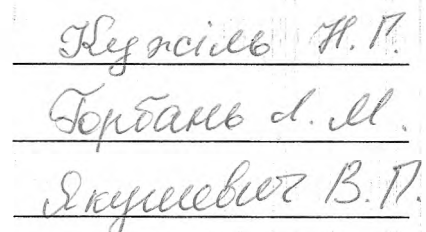 Кужіль Н. П.
Горбань Л. М.
Якушевич В. П.